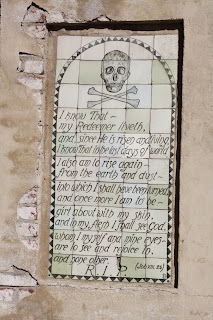 I know That ~
my Redeemer liveth,
and since He is risen and living
I know that in the last days of world
I also am to rise again ~
from the earth and dust ~
into which I shall have been turned
and once more I am to be ~
girt about with my skin.
and in my flesh I shall see God.
whom I myself and mine eyes ~
are to see and rejoice in,
and none other.
R I P